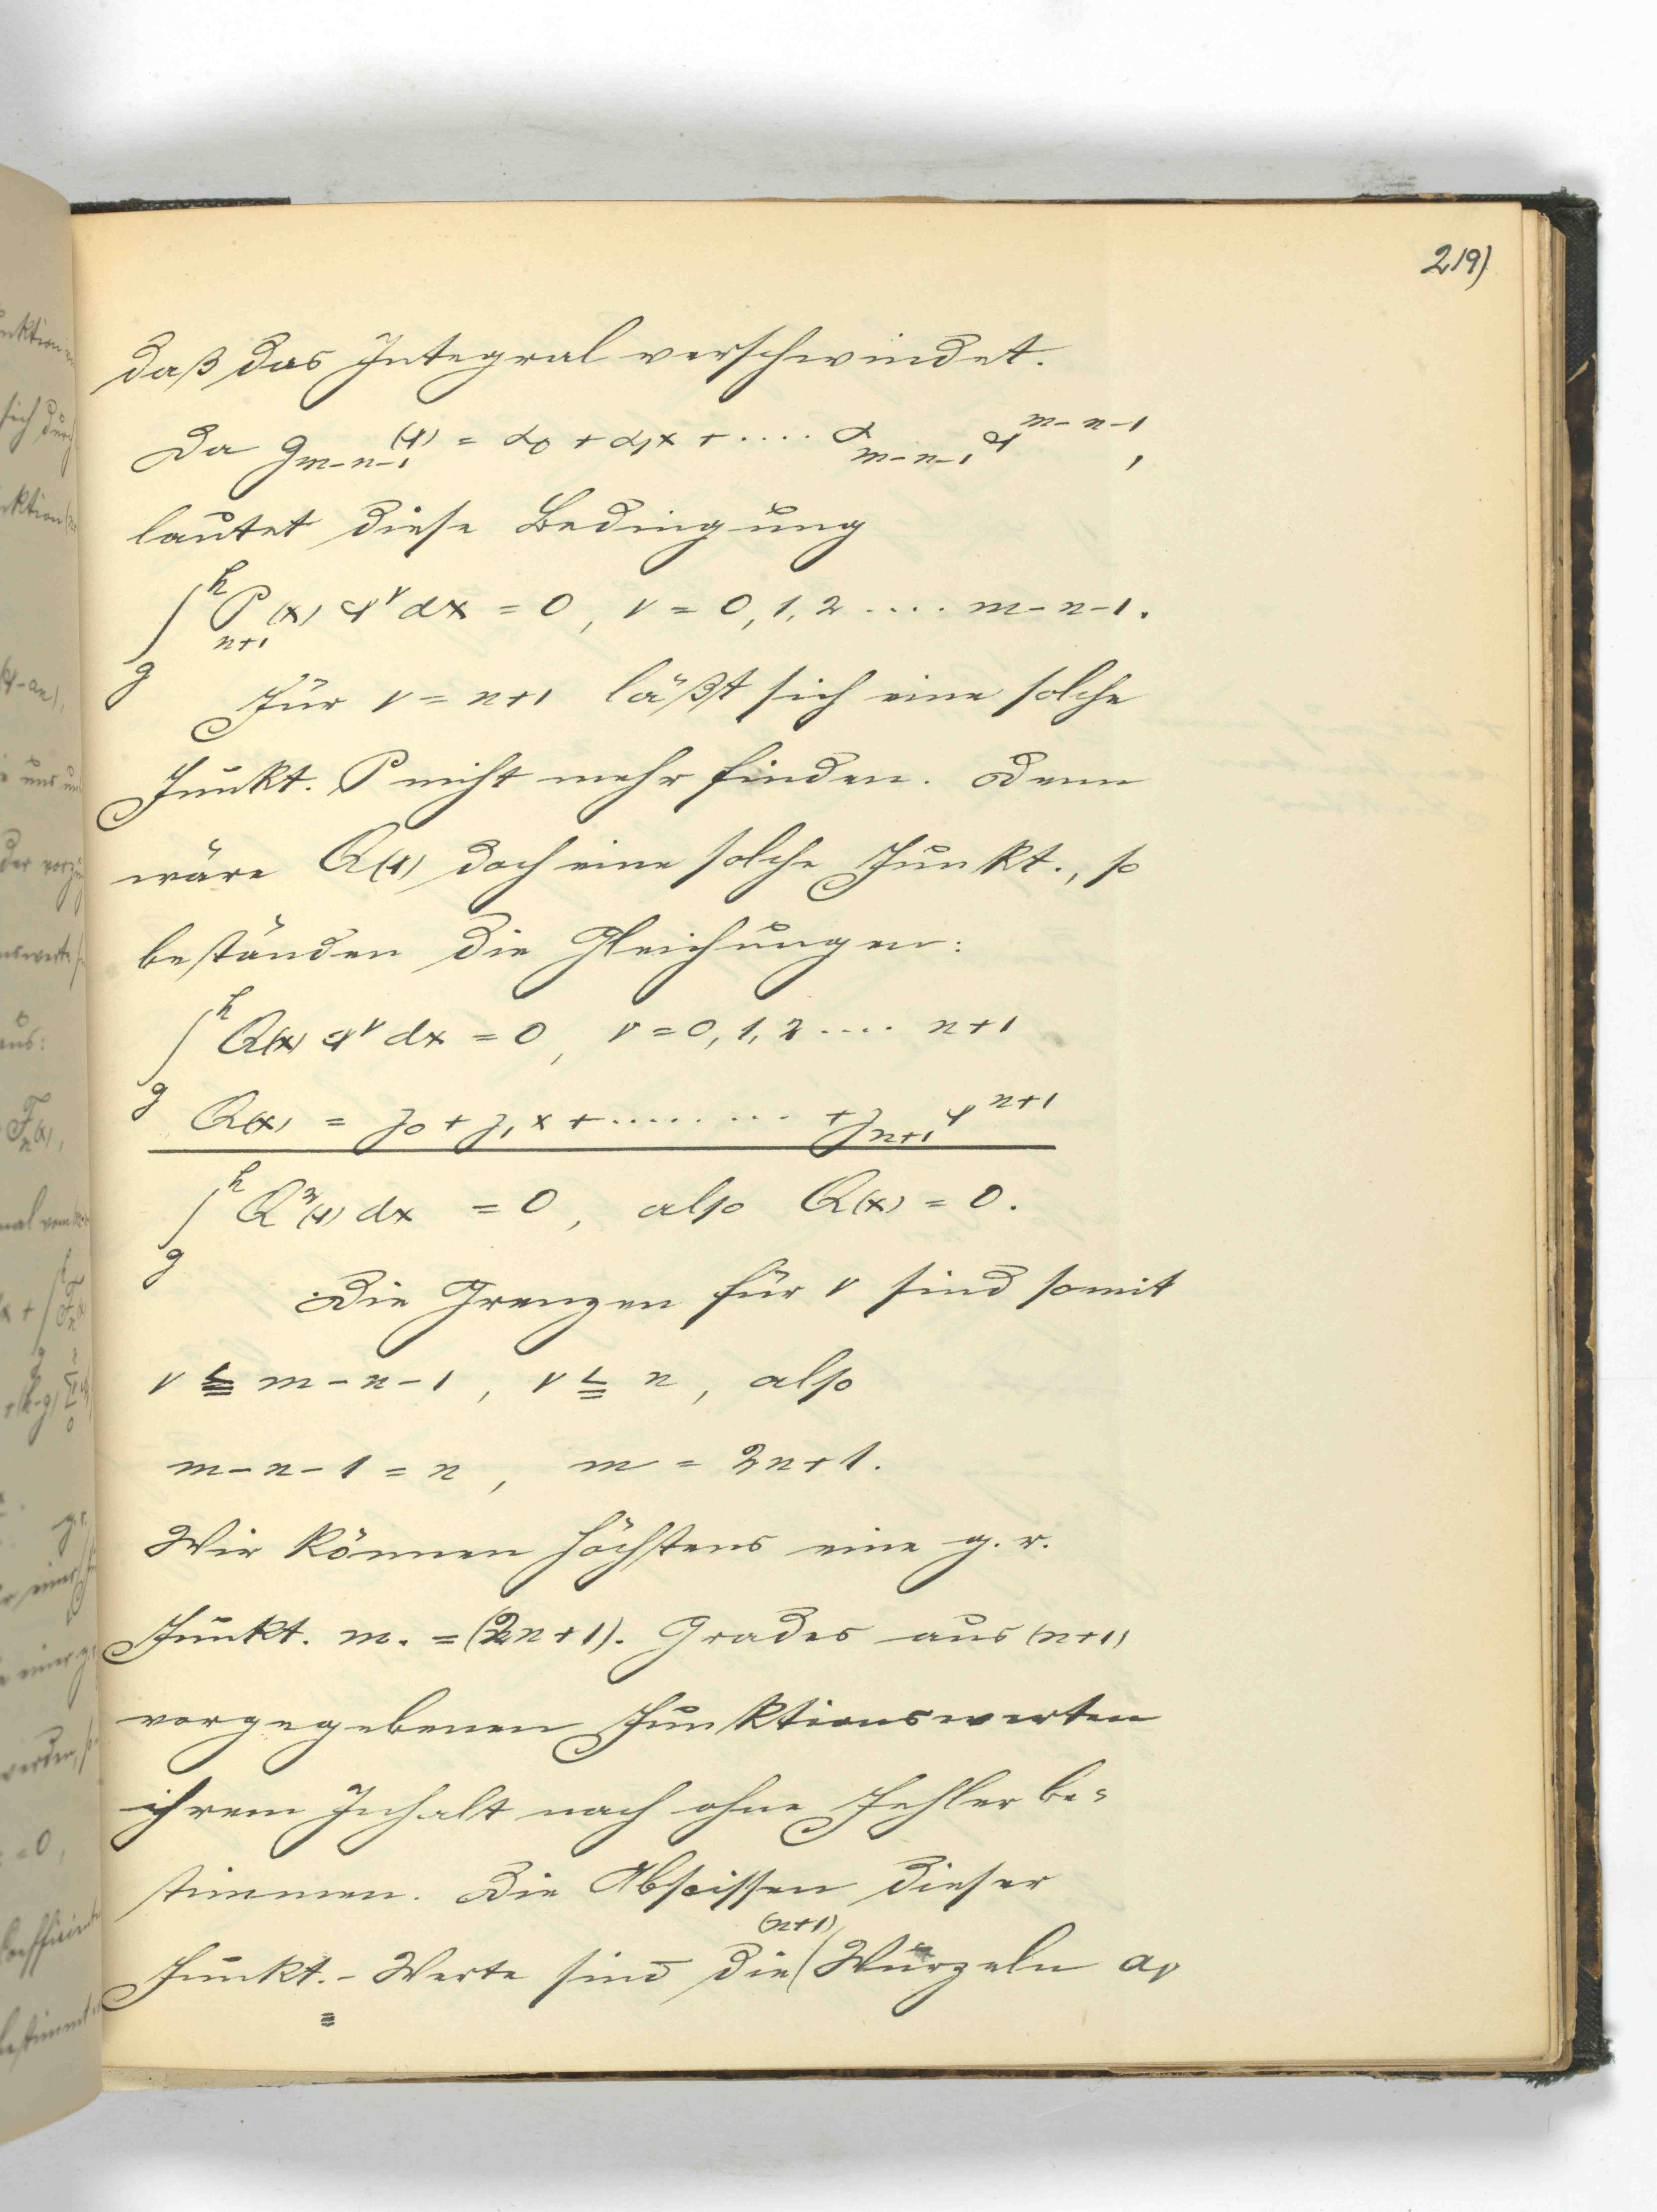 219)
daß das Integral verschwindet.
Da g_{m-n-1}(x) = α_0 + α_1x + .... α_{m-n-1}x^{m-n-1},
lautet diese Bedingung
∫_g^h P_{n+1}(x) x^ν dx = 0, ν = 0, 1, 2 .... m-n-1.
Für ν = n+1 läßt sich eine solche
Funkt. P nicht mehr finden. Denn
wäre Q(x) doch eine solche Funkt., so
beständen die Gleichungen:
∫_g^h Q(x) x^ν dx = 0, ν = 0, 1, 2 .... n+1
Q(x) = γ_0 + γ_1 x + ......... + γ_{n+1} x^{n+1}
∫_g^h Q^2(x) dx = 0, also Q(x) = 0.
Die Grenzen für ν sind somit
ν ≦ m-n-1, ν ≦ n, also
m-n-1 = n, m = 2n+1.
Wir können höchstens eine g. r.
Funkt. m. = (2n+1). Grades aus (n+1)
vorgegebenen Funktionswerten
ihrem Inhalt nach ohne Fehler be=
stimmen. Die Abscissen dieser
Funkt.-Werte sind die (n+1) Wurzeln a_ν